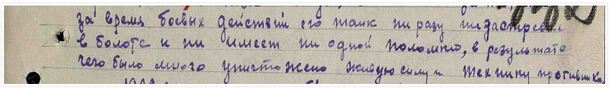 за время боевых действий его танк ни разу не застревал
в болоте и ни имеет ни одной поломки, в результате
чего было много уничтожено живую силу и технику противника.